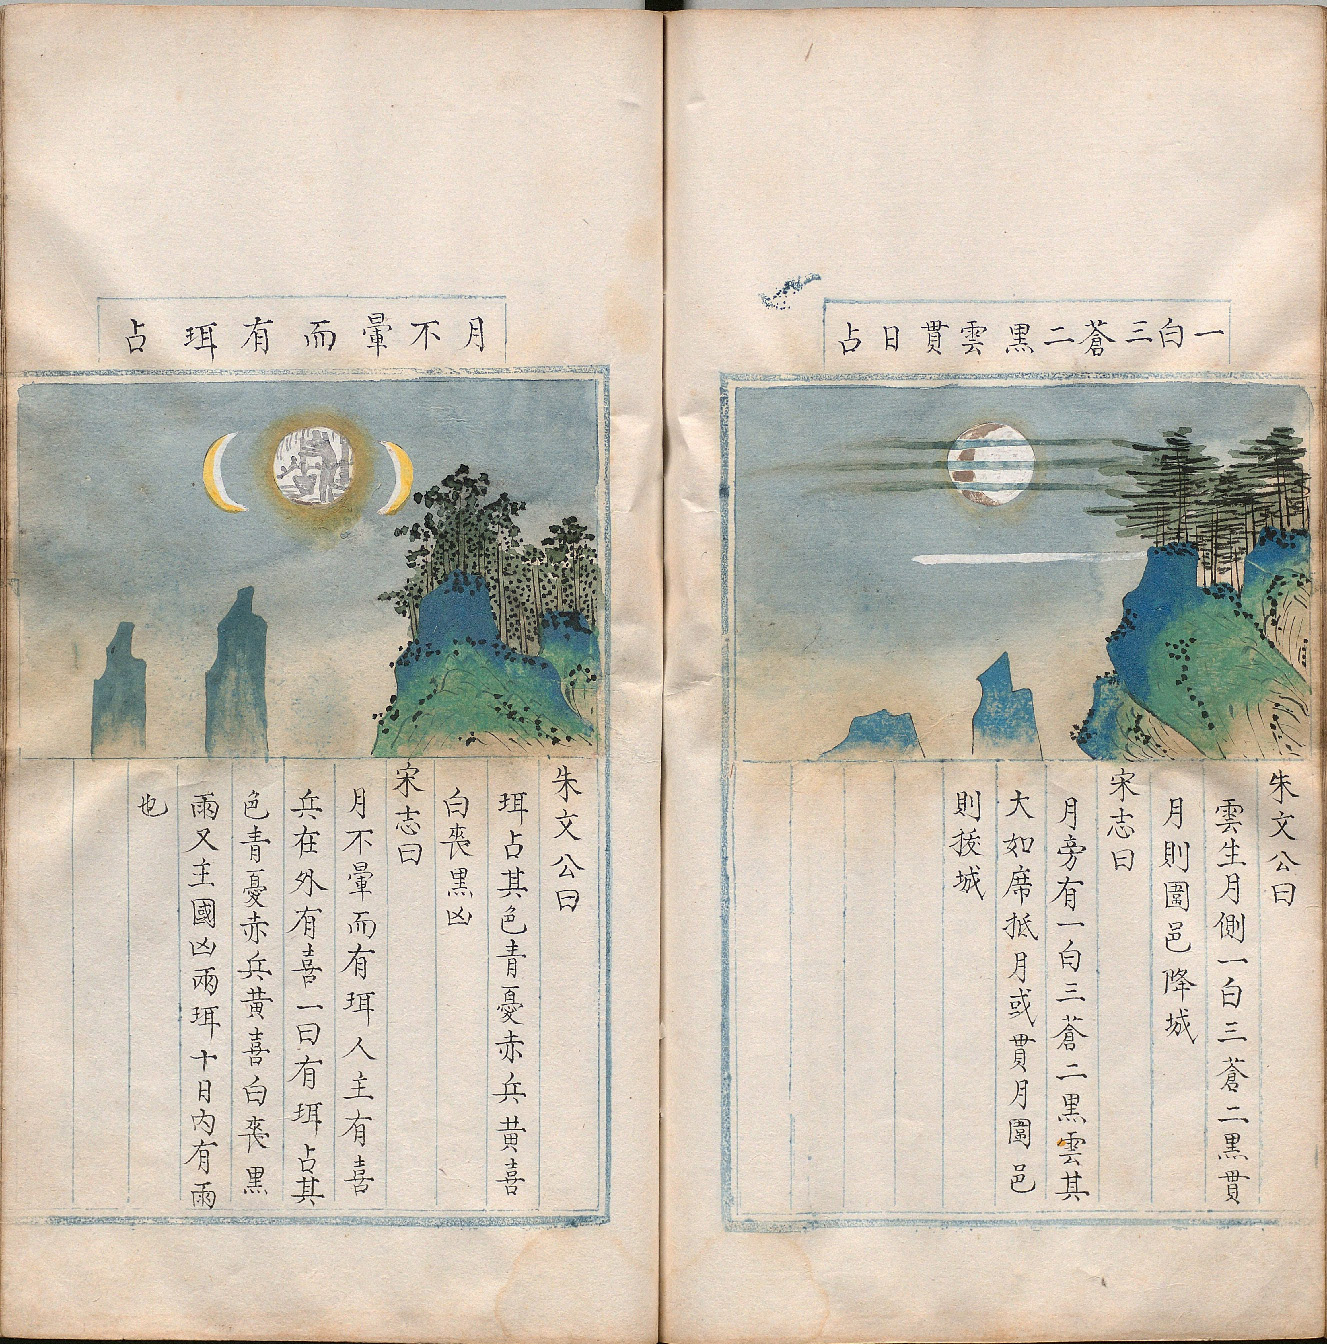 一白三蒼二黑雲貫日占
朱文公曰
雲生月側一白三蒼二黑貫
月則圍邑降城
宋志曰
月旁有一白三蒼二黑雲其
大如席抵月或貫月圍邑
則拔城
月不暈而有珥占
朱文公曰
珥占其色青憂赤兵黄喜
白喪黑凶
宋志曰
月不暈而有珥人主有喜
兵在外有喜一曰有珥占其
色青憂赤兵黄喜白喪黑
雨又主國凶兩珥十日內有雨
也